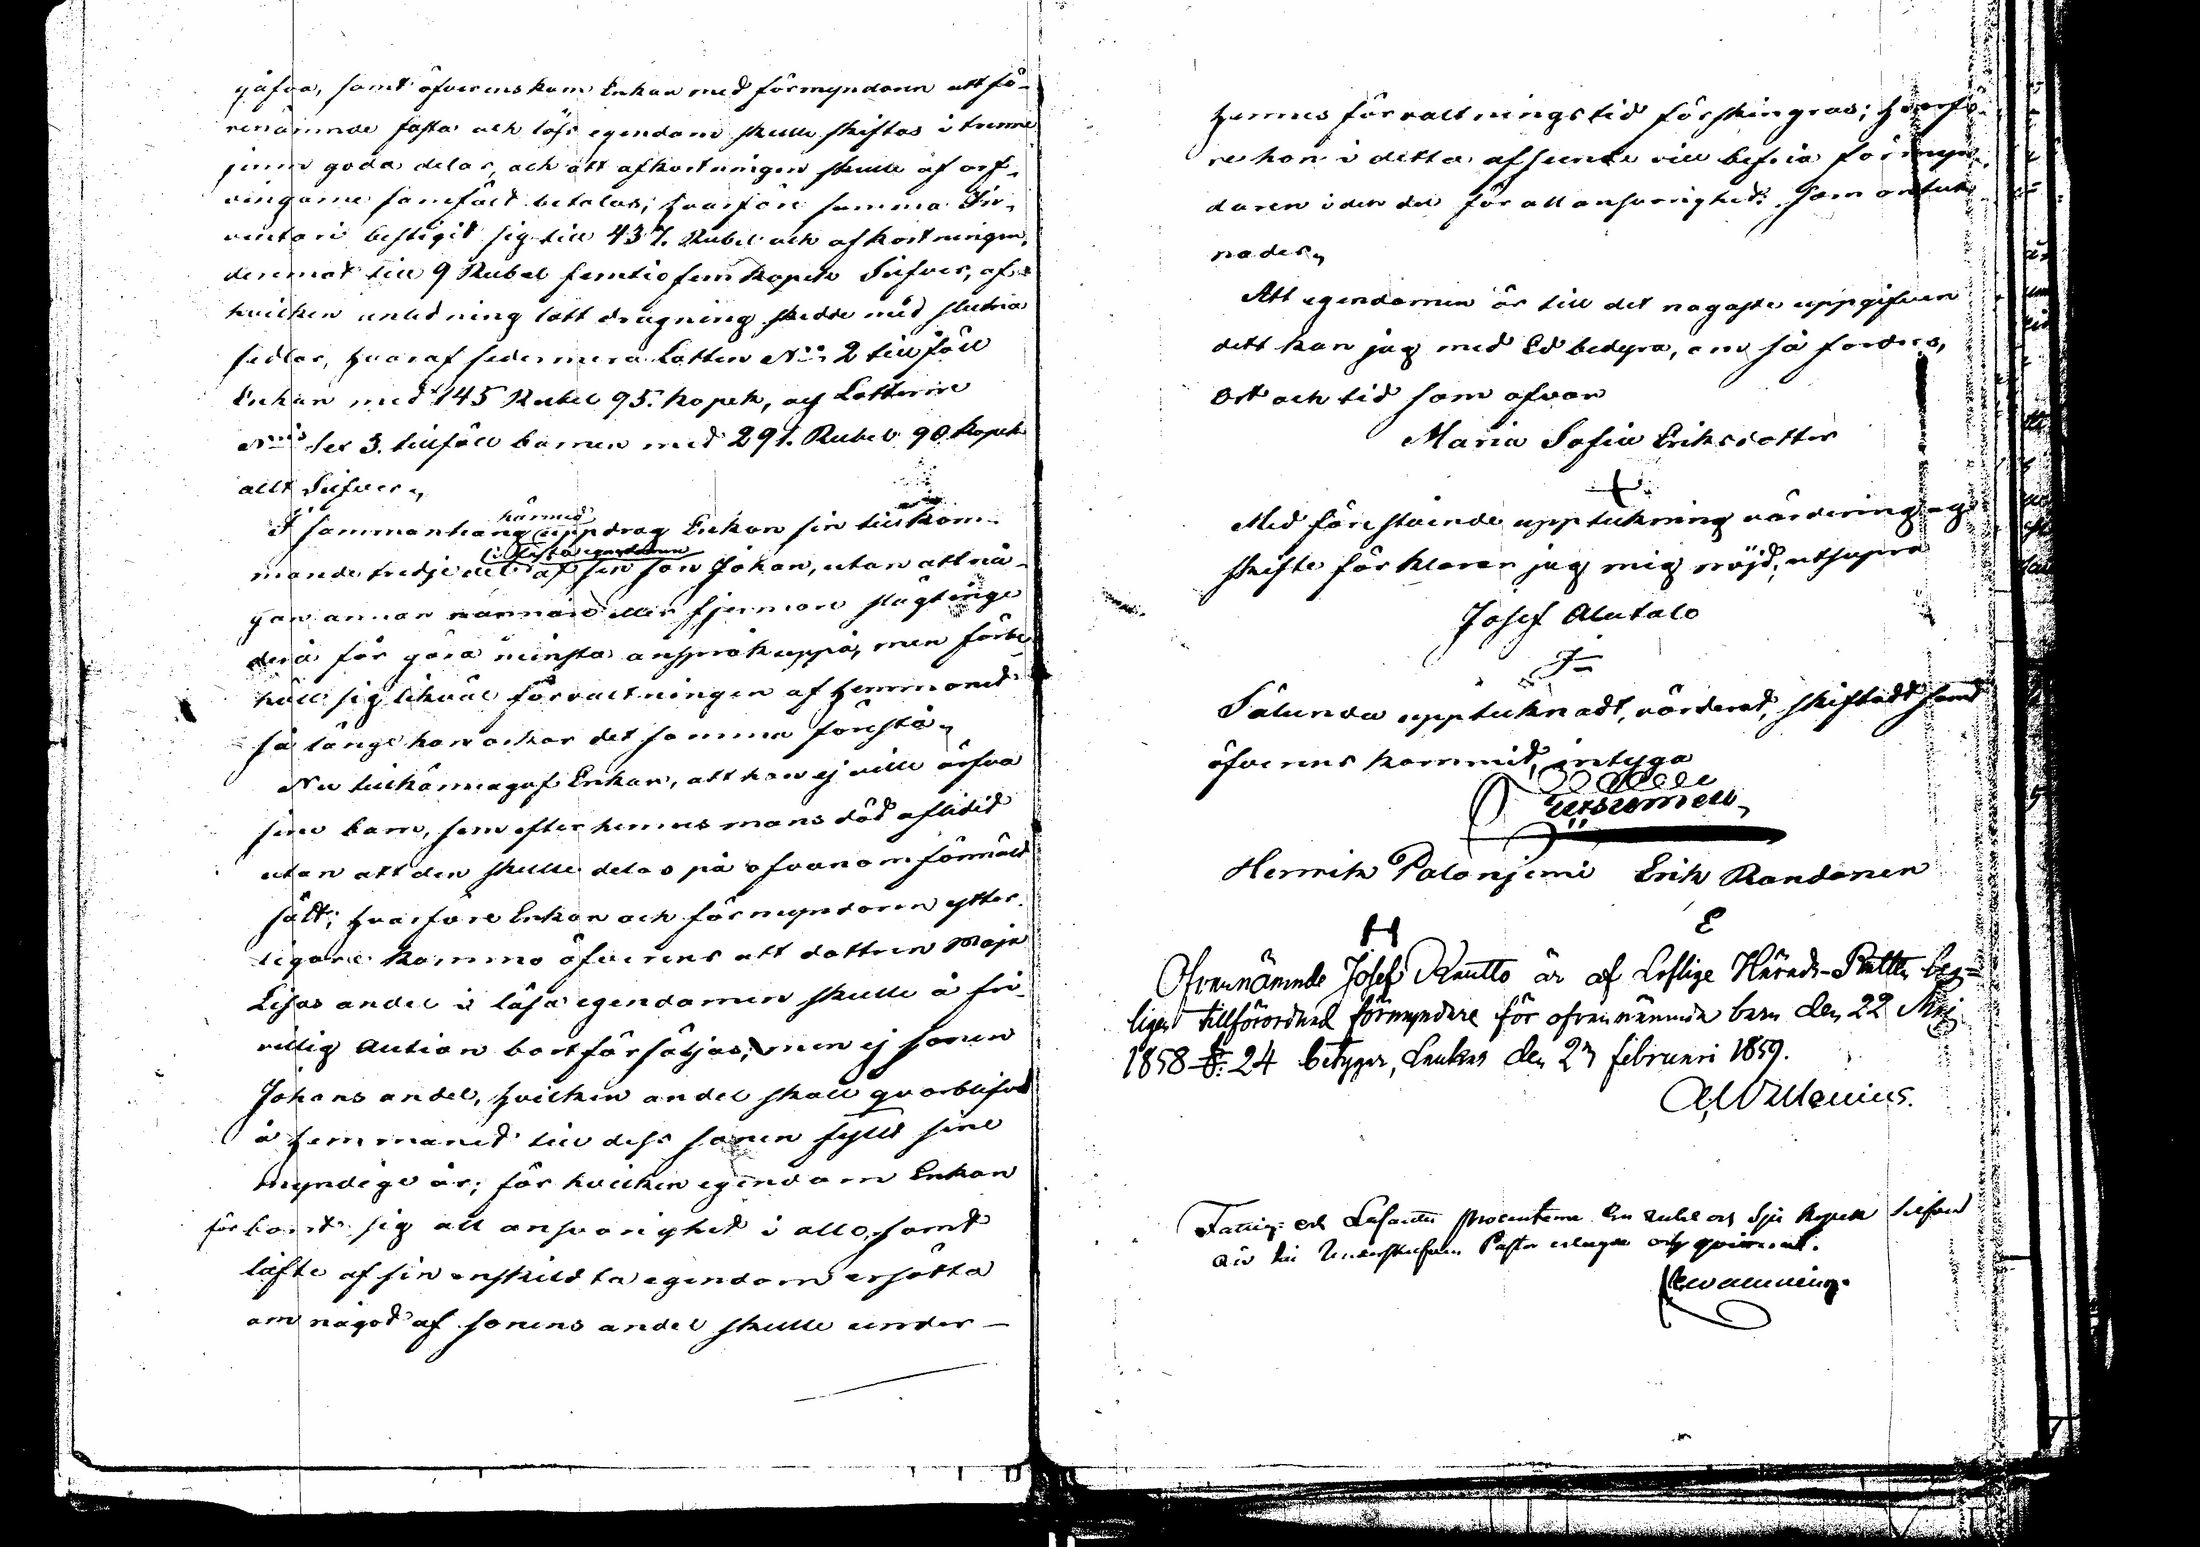 gåfva, samt öfverenskom Enkan med förmyndaren att få-
renämnde fasta och lösa egendom skulle skiftas i trenne
jemn goda delar, och att afkortningen skulle af arf-
vingarne samfäldt betalas; hvarföre summa In-
ventarii bestigit sig till 437. Rubel och afkortningen,
deremot till 9 Rubel femtiofem kopek Silfver, af
hvilken anledning lott dragning skedde med slutna
sedlar, hvaraf sedermera Lotten N:o 2 tillföll
Enkan med 145 Rubel 95. kopek, og Lotterne
1 et 3. tillföll barnen med 291. Rubel 90 kopek
allt Silfver.,
härmed
I sammanhang uppdrog Enkan sin tillkom-
i fasta egendomen
mande tredje del af sin son Johan, utan att nå-
gon annan närmare eller fjermare slägtinge
derå får göra minsta anspråk uppå, men förbe
höll sig likväl förvaltningen af hemmanet
så länge hon orkar det samma förestå.,
Nu tillkännagaf Enkan, att hon ej ville ärfva
sine barn, som efter hennes mans död aflidit
utan att den skulle delas på ofvanomförmäldt
sätt; hvarföre Enkan och förmyndaren ytter-
ligare kommo öfverens att dottren Maja
Lisas andel i lösa egendomen skulle å fri-
villig Aution bortförsäljas, men ej sonen
Johans andel, hvilken andel skall qvarblifva
å hemmanet till dess sonen fylldt sine
myndige år; för hvilken egendom Enkan
för band sig all ansvarighet i allo, samt
löfte af sin enskildta egendom ersätta
om något af sonens andel skulle under-
hennes förvaltningstid förskingras; hvarfö-
re hon i detta afseende vill befria förmyn-
daren i den del för all ansvarighet; som antek-
nades.,
Att egendomen är till det nogaste uppgifven
dett kan jag med Ed betyra, om så fordras,
Ort och tid som ofvan
Maria Sofia Eriksdotter
Med förestående uppteckning värdering og
skifte förklarar jag mig nöjd; utsupra
Josef Alatalo
Sålunda upptecknadt, värderat, skiftadt samt
öfverens kommit, intyga
Henrik Palonjemi Erik Randanen
H E
Ofvannämnde Josef är af Loflige Härads-Rätten beg=
ligen tillförordnad förmyndare för ofvannämnda barn den 22 Maj
1858 §. 24 betygar, den 23 februari 1859.
Fattig- och procenterna En rubel och sju kopek silfver
äro till Underskrifven Pastor erlagde och qvitteras.